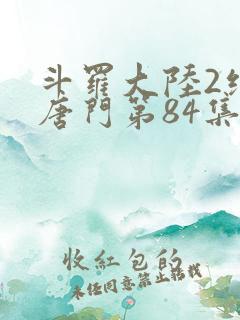 斗羅大陸2絕
唐門第84集
收紅包的
未经同意禁止转载